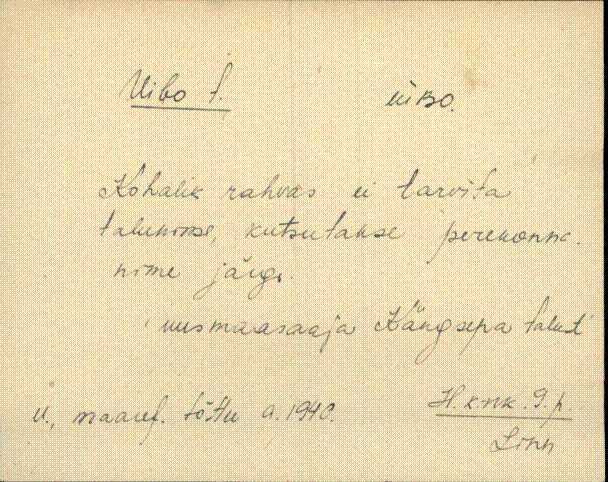 Uibo t. uiBo.
Kohalik rahvas ei tarvita
talunime, kutsutakse perekonna-
nime järgi.
uusmaasaaja Kängsepa talust
u., maaref. tõttu a. 1940.
H. k. nk. 9. p.
Linn